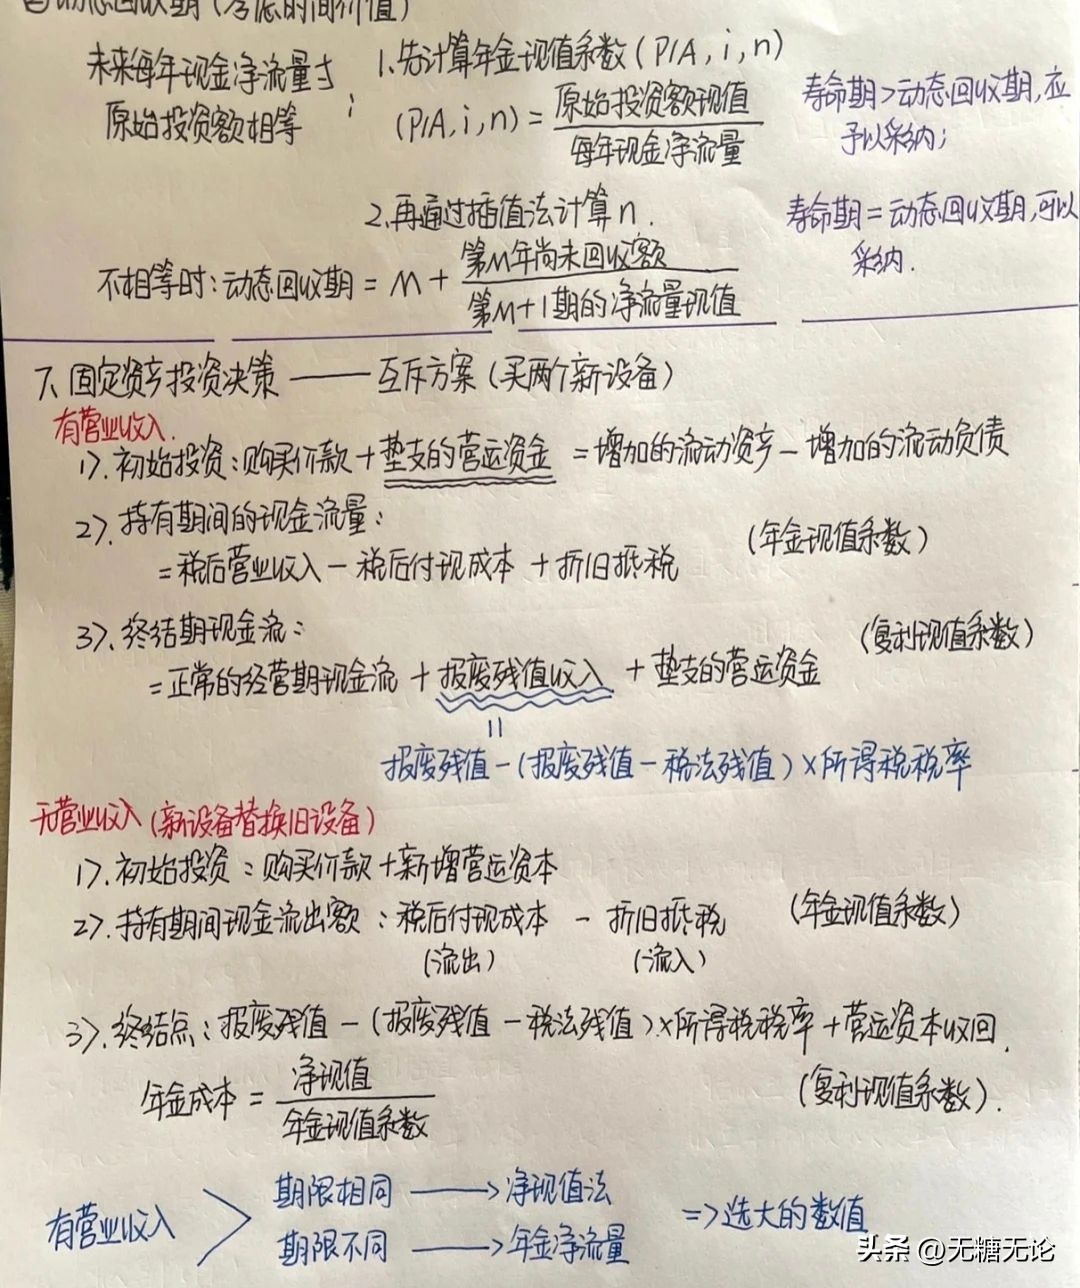 动态回收期(考虑时间价值)
未来每年现金净流量与
原始投资额相等
:
1.先计算年金现值系数(P/A,i,n)
(P/A,i,n)=原始投资额现值
每年现金净流量
寿命期>动态回收期,应
予以采纳;
2.再通过插值法计算n.
寿命期=动态回收期,可以
采纳.
不相等时:动态回收期=M+第M年尚未回收额
第M+1期的净流量现值
7、固定资产投资决策——互斥方案(买两个新设备)
有营业收入.
1).初始投资:购买价款+垫支的营运资金=增加的流动资产-增加的流动负债
2).持有期间的现金流量:
(年金现值系数)
=税后营业收入-税后付现成本+折旧抵税
3).终结期现金流:
(复利现值系数)
=正常的经营期现金流+报废残值收入+垫支的营运资金
=
报废残值-(报废残值-税法残值)×所得税税率
无营业收入(新设备替换旧设备)
1).初始投资:购买价款+新增营运资本
2).持有期间现金流出额:税后付现成本-折旧抵税
(年金现值系数)
(流出)
(流入)
3).终结点:报废残值-(报废残值-税法残值)×所得税税率+营运资本收回.
(复利现值系数).
年金成本=净现值
年金现值系数
有营业收入>期限相同→净现值法
期限不同→年金净流量
=>选大的数值
头条@无糖无论